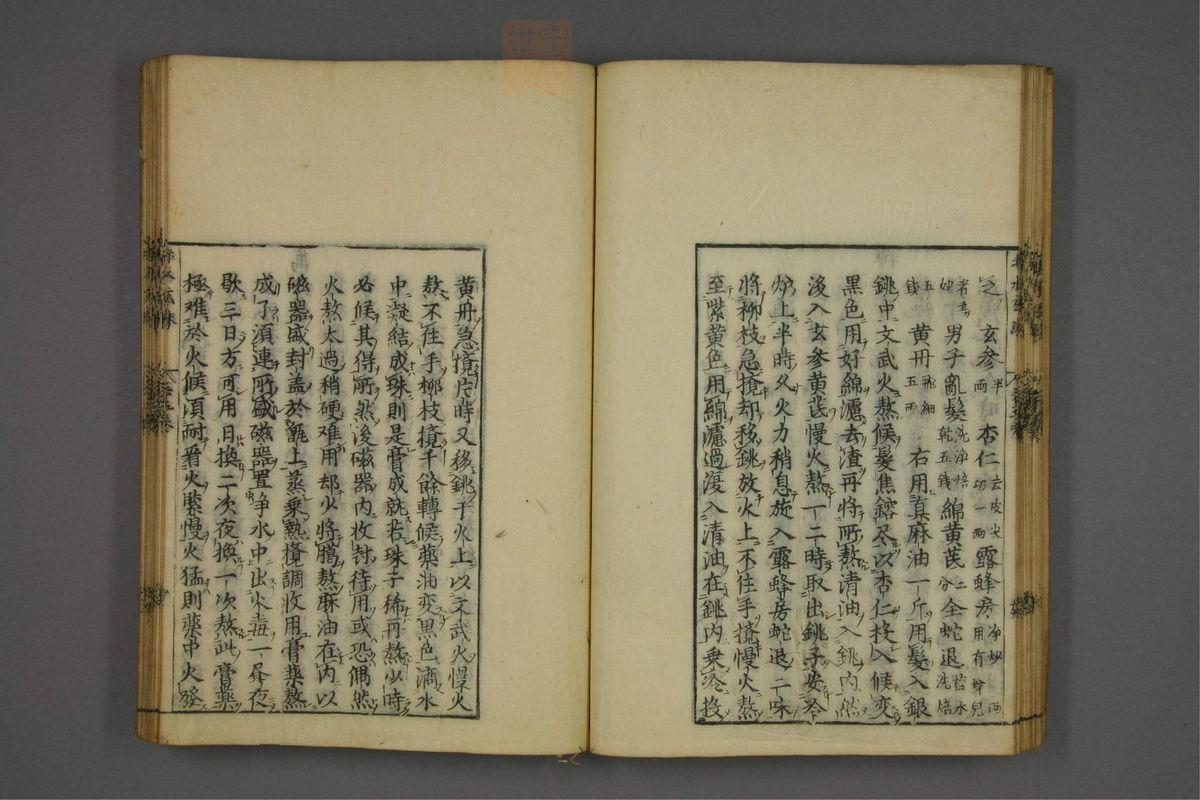 之 玄參半兩 杏仁去皮尖切一兩 露蜂房淨炒兩用有蜂兒
者為妙 男子亂髮洗淨焙乾五錢 綿黃芪二分 全蛇退鹽水洗焙
五錢 黃丹飛細五兩 右用真麻油一斤用髮入銀
銚中文武火熬候髮焦鎔尽以杏仁投入候変
黑色用好綿濾去渣再將所熬清油入銚内然
後入玄參黃芪慢火熬一二時取出銚子安冷
炉上半時久火力稍息旋入露蜂房蛇退二味
將柳枝急攪却移銚放火上不住手攪慢火熬
至紫黃色用綿濾過復入清油在銚内乗冷投
黃丹急攪片時又移銚于火上以文武火慢火
熬不住手柳枝攪千餘轉候藥油変黑色滴水
中凝結成珠則是膏成就若珠子稀再熬少時
必候其得所然後磁器内收封待用或恐偶然
火熬太過稍硬难用却少將臈熬麻油在内以
磁器盛封盖於甑上蒸乗熱攪調收用膏藥熬
成了須連所盛磁器置净水中出火毒一昼夜
歇三日方可用日換二次夜換一次熬此膏藥
極难於火候須耐看火緊慢火猛則藥中火發